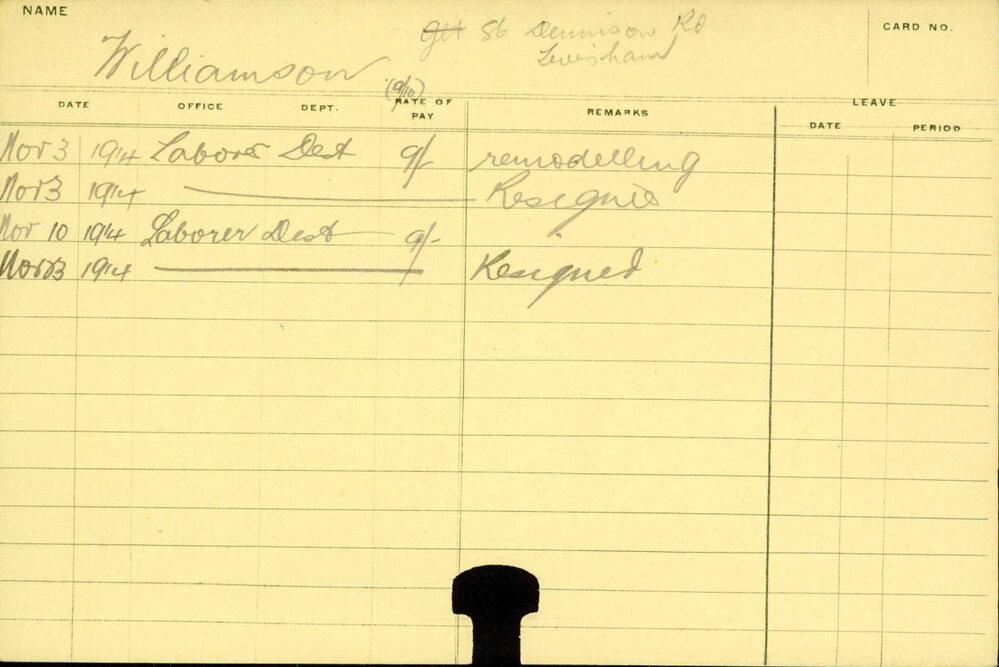 NAME
56 Dennison Rd
Lewisham
CARD NO.
Williamson
(9/10)
DATE OFFICE DEPT. RATE OF PAY REMARKS LEAVE
DATE PERIOD
Nov 3 1914 Laborer Dest 9/- remodelling
Nov 3 1914 Resigned
Nov 10 1914 Laborer Dest 9/-
Nov 1914 Resigned